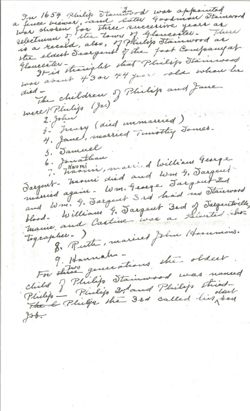 In 1654 Philip Stainwood was appointed
a fence viewer, and later Goodman Stainwood
was chosen for three successive years as
selectman of the town of Gloucester. There
is a record, also, of Philip Stainwood as
the oldest Sargeant of the Foot Company at
Gloucester.
It is thought that Philip Stainwood
was about 43 or 44 years old when he
died.
The children of Philip and Jane
were 1 Philip (Jr)
2. John
3. (died unmarried)
4. Jane, married Timothy Somes.
5. Samuel
6. Jonathan
7. Naomi, married William George
Sargent. Naomi died and Wm G. Sargent
married again. Wm. George Sargent 2nd
and Wm G. Sargent 3rd had no Stainwood
blood. William G. Sargent 3rd of Sargentville,
Maine, and Castine was a
8. Ruth, married John Hammons.
9. Hannah.
For two generations the oldest
child of Philip Stainwood was named
Philip — Philip 2nd and Philip third.
The Philip the 3rd called his oldest son
Job.